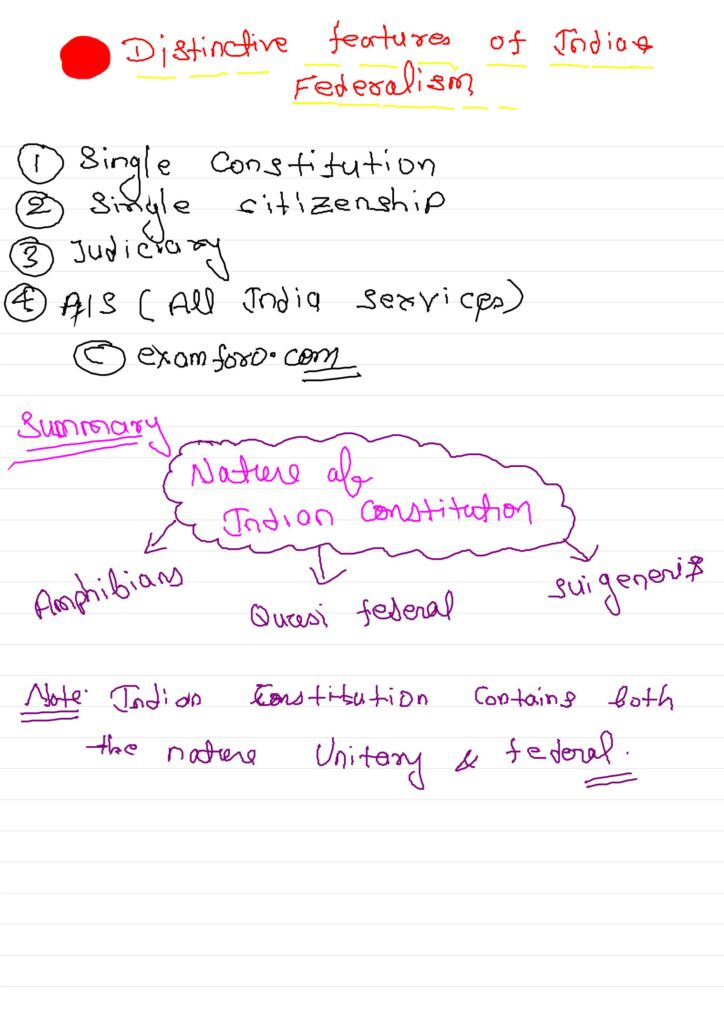 Distinctive features of Indian
Federalism
① Single Constitution
② Single citizenship
③ Judiciary
④ AIS (All India Services)
© examforo.com
Summary
Nature of
Indian Constitution
Amphibians
Quasi federal
sui generis
Note: Indian Constitution Contains both
the nature Unitary & federal.